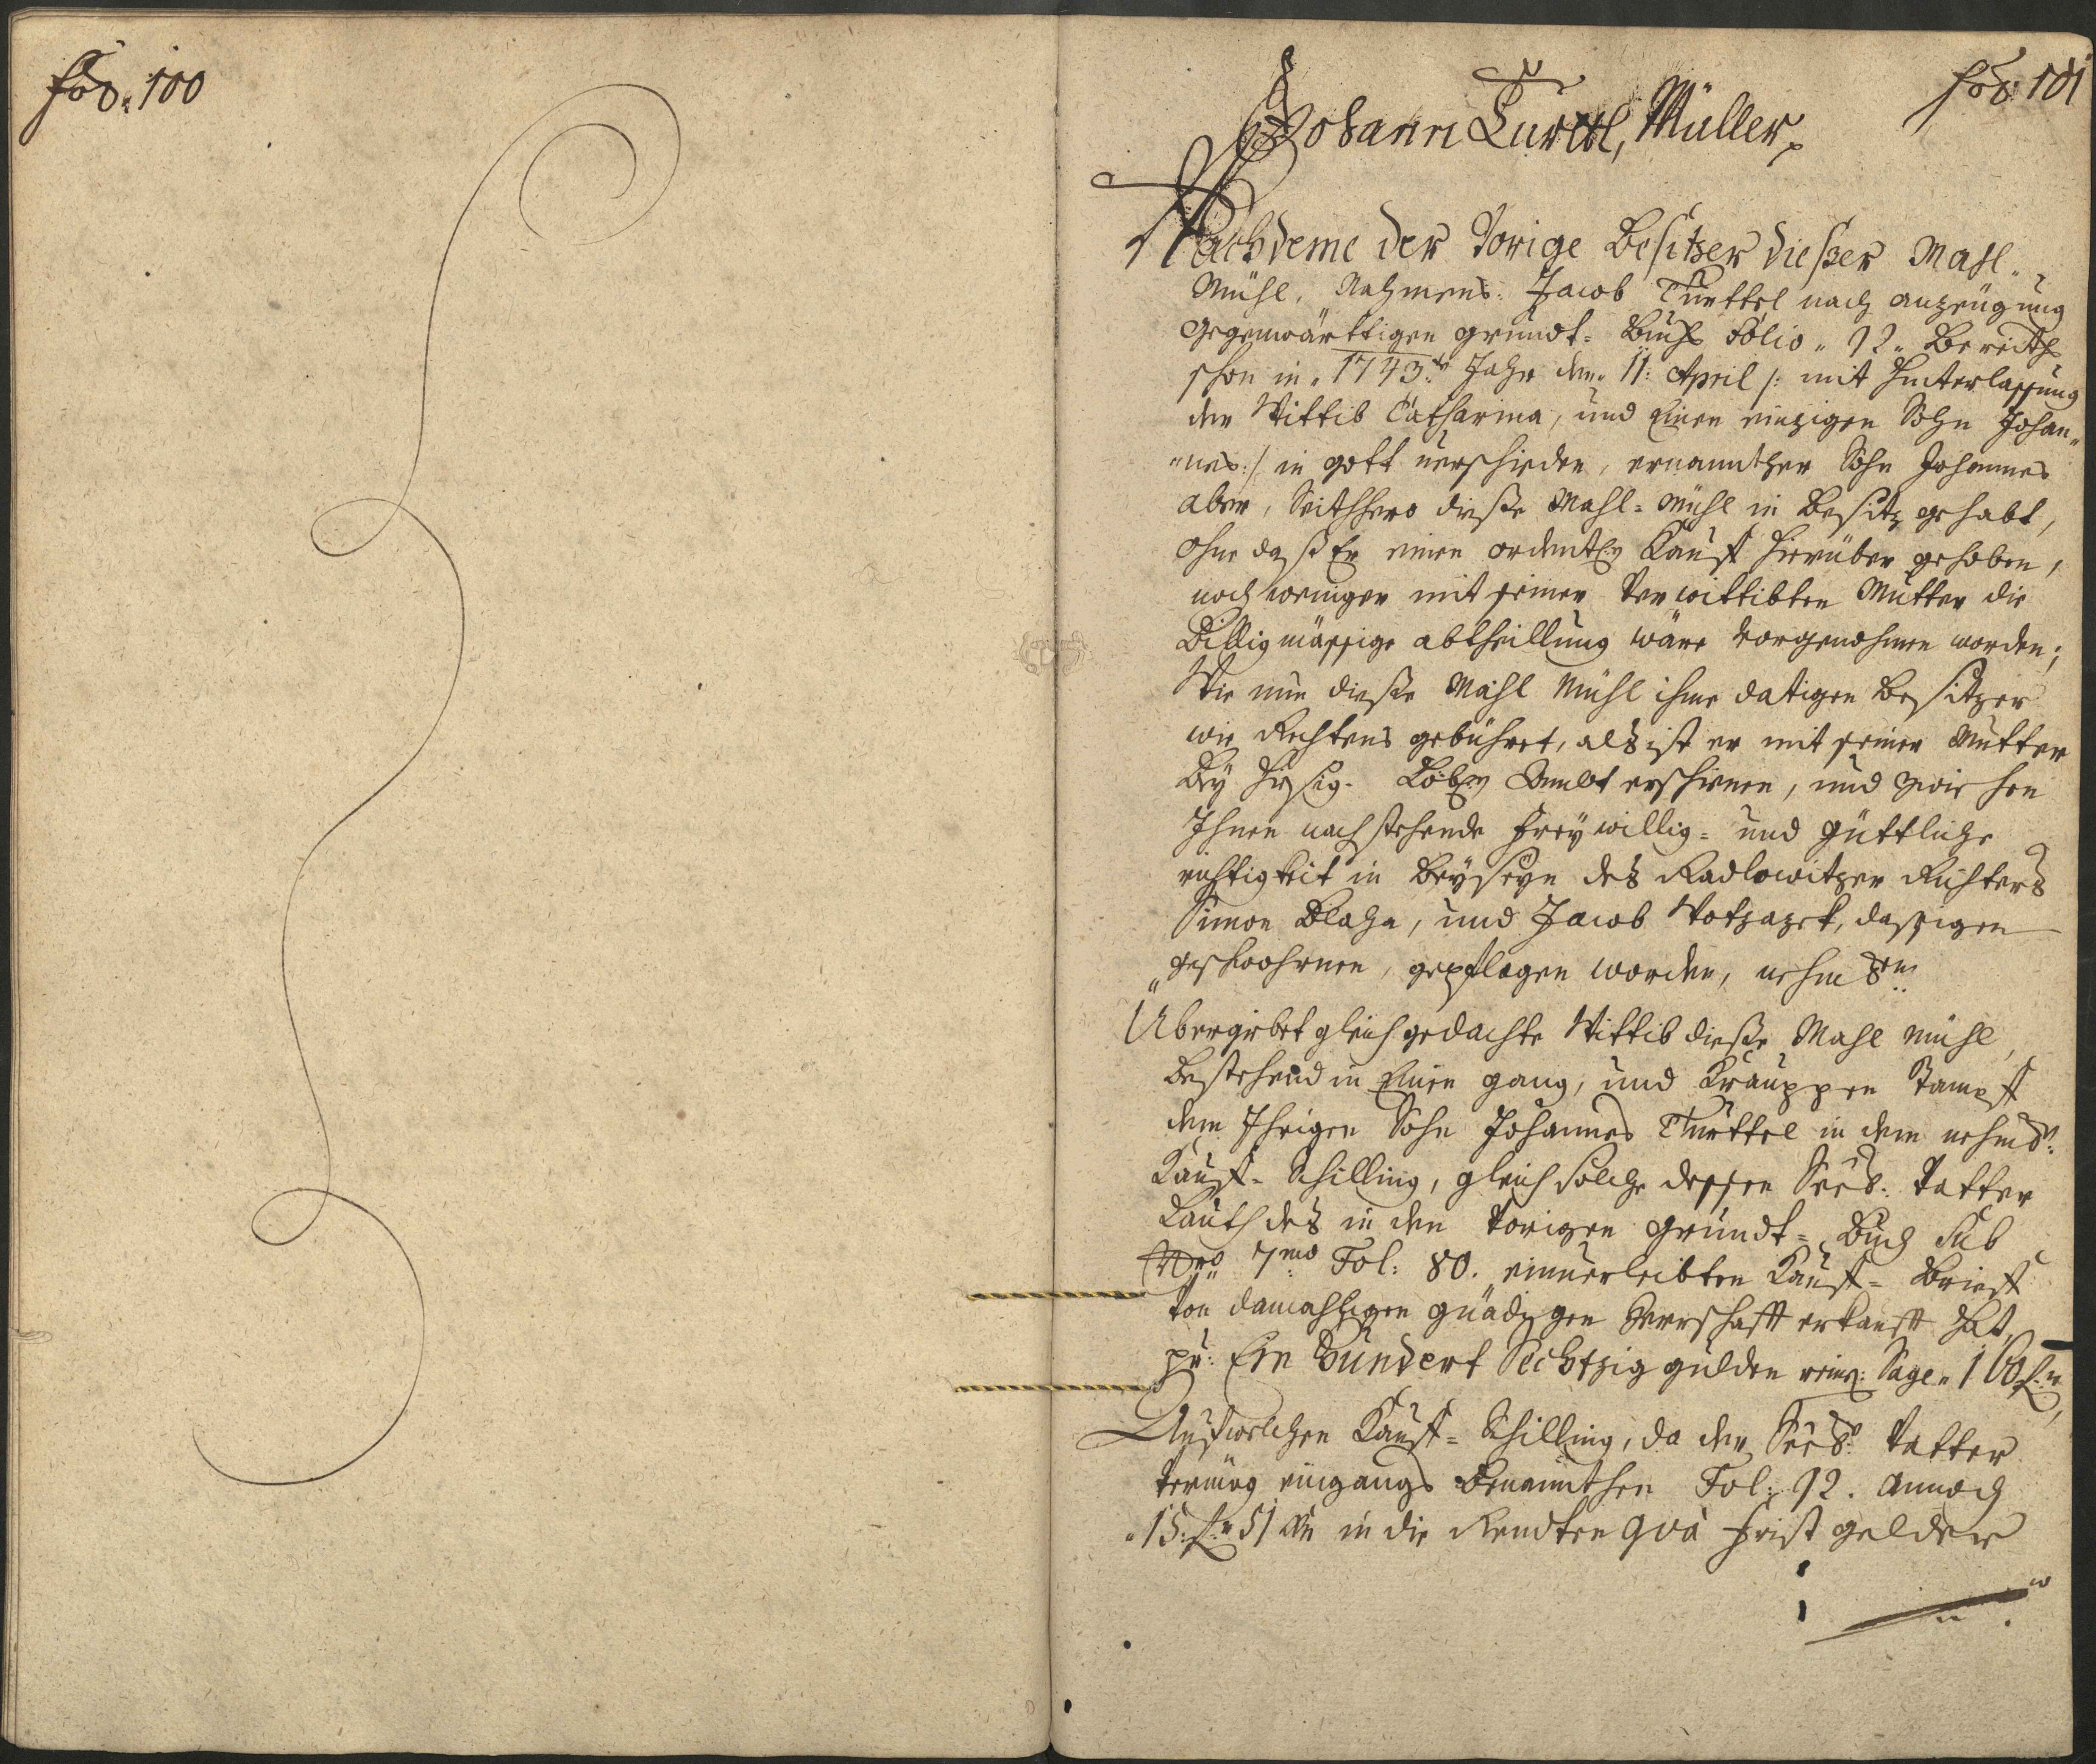 Fol. 100
Fol. 101
Johann Turttl, Müller
Nachdeme der Vorige Besitzer dießer Mahl-
Mühl, Nahmens: Jacob Turttel nach anzeügung
Gegenwärttigen grundt= Buchs Folio 92 Bereiths
schon in 1743ten Jahr den 11: April /: mit hinterlassung
der Wittib Catharina, und Einen einzigen Sohn Johan-
nes :/ in gott verschieden, ernannther Sohn Johannes
aber, Seithhero dieße Mahl=Mühl in Besitz gehabt,
ohne daß Er einen ordentl: Kauff hierüber gehoben,
noch weniger mit seiner Verwittibten Mutter die
Billigmässige abtheillung wäre vorgenohmen worden;
Wie nun dieße Mahl Mühl ihme datigen Besitzer
wie Rechtens gebühret, als ist er mit seiner Mutter
Bey hisig. Löbl: Ambt erschienen, und zwischen
Ihnen nachstehende freywillig= und güttliche
richtigkeit in Beyseyn des Radlowitzer Richters
Simon Blaha, und Jacob Wotzazek, dassigen
geschwohrnen, gepflogen worden, nehml:
Ubergibet gleich gedachte Wittib dieße Mahl Mühl,
Bestehend in Einen gang, und Krauppen Stampff
dem Ihrigen Sohn Johannes Turttel in dem nehml:
Kauff= Schilling, gleich solche dessen Seel: Vatter
Lauth des in den Vorigen grundt= Buch sub
Nro 7mo Fol: 80. einverleibten Kauff= Brieff
Von damahligen gnädigen Herrschafft erkaufft hat,
pr: Ein Hundert Sechtzig gulden rein: Sage 160 f:
Auf welchen Kauff= Schilling, da der Seel: Vatter
Vermög eingangs Benannthen Fol: 92. annoch
15: f: 51 Kr in die Rendten qua frist gelder